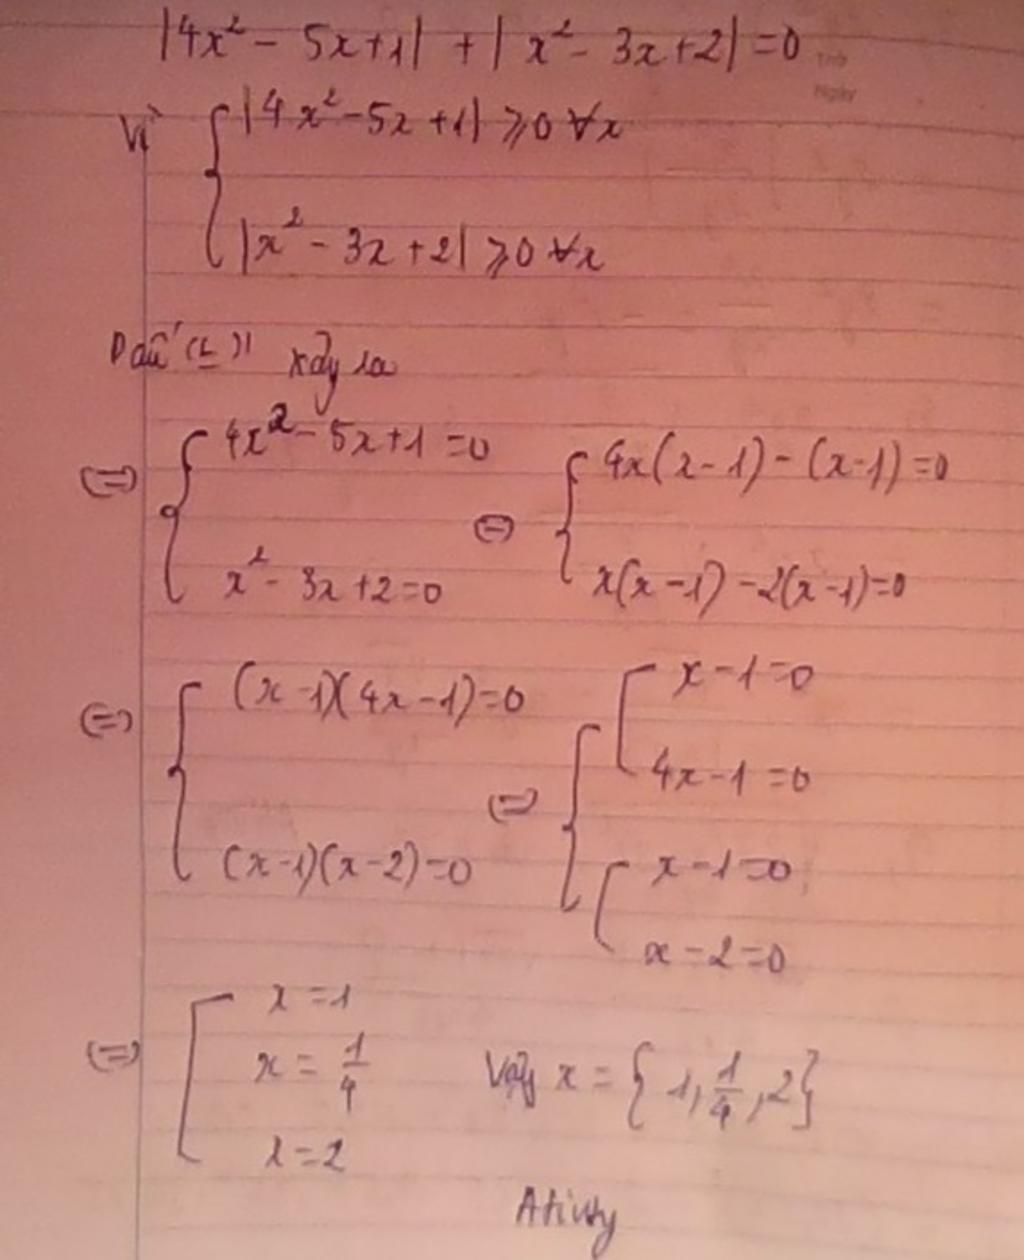 |4x² - 5x + 1| + |x² - 3x + 2| = 0
Vì { |4x² - 5x + 1| ≥ 0 ∀x
|x² - 3x + 2| ≥ 0 ∀x
Dấu "=" xảy ra
<=> { 4x² - 5x + 1 = 0
x² - 3x + 2 = 0
<=> { 4x(x - 1) - (x - 1) = 0
x(x - 1) - 2(x - 1) = 0
<=> { (x - 1)(4x - 1) = 0
(x - 1)(x - 2) = 0
<=> { [ x - 1 = 0
4x - 1 = 0
[ x - 1 = 0
x - 2 = 0
<=> [ x = 1
x = 1/4
x = 2
Vậy x = {1, 1/4, 2}